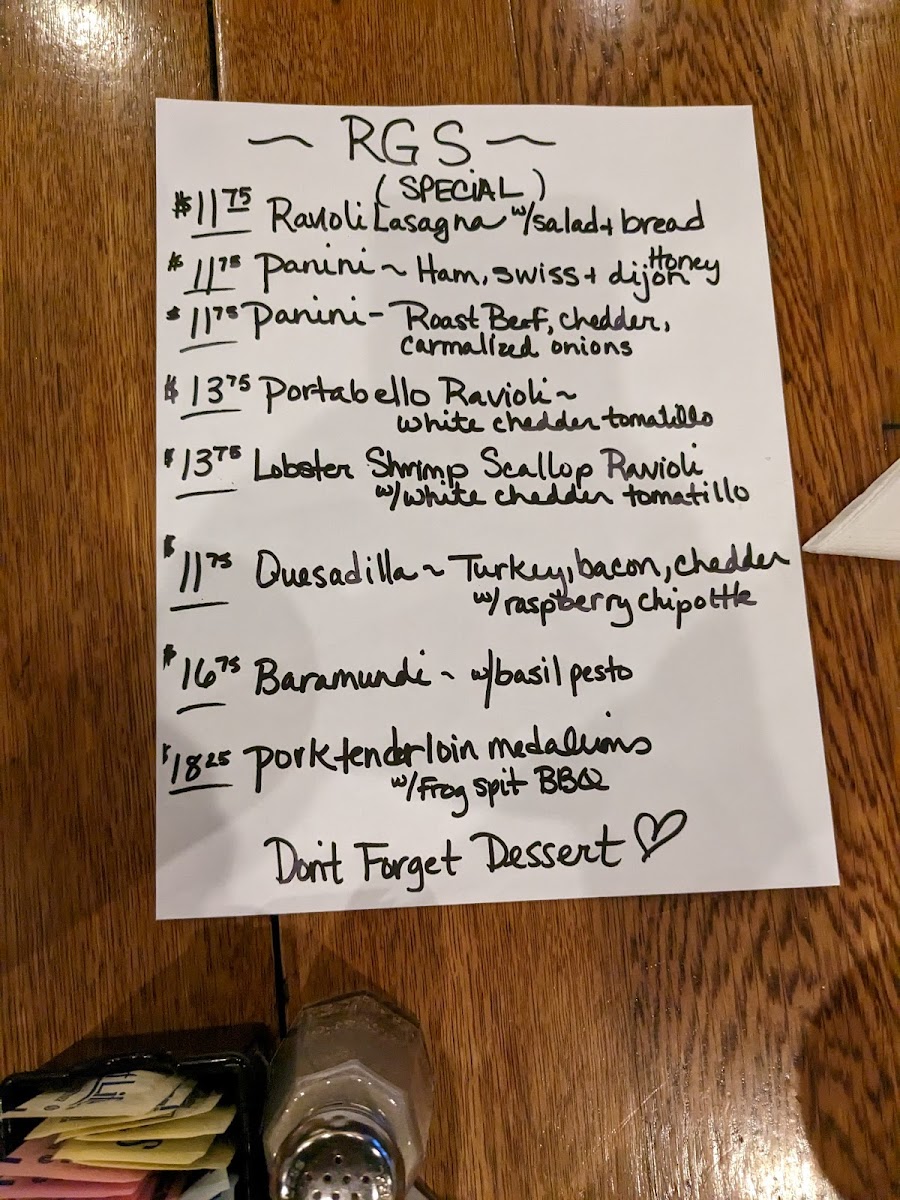 ~ RGS ~
(SPECIAL)
$11.75 Ravioli Lasagna w/salad + bread
$11.75 Panini ~ Ham, swiss + Honey dijon
$11.75 Panini - Roast Beef, chedder,
carmalized onions
$13.75 Portabello Ravioli ~
white chedder tomatillo
$13.75 Lobster Shrimp Scallop Ravioli
w/white chedder tomatillo
$11.75 Quesadilla ~ Turkey, bacon, chedder
w/ raspberry chipottle
$16.75 Baramundi ~ w/basil pesto
$18.25 porktenderloin medallions
w/Frog spit BBQ
Don't Forget Dessert ♡